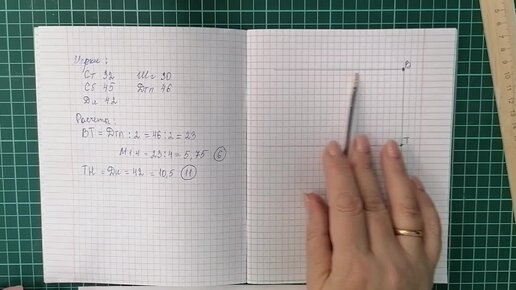 Мерки:
Ст 32 Шг 30
Сб 45 Дтп 46
Ди 42
Расчеты:
ВТ = Дтп : 2 = 46 : 2 = 23
М 1:4 = 23 : 4 = 5,75 (6)
ТН = Ди = 42 = 10,5 (11)
В
Т